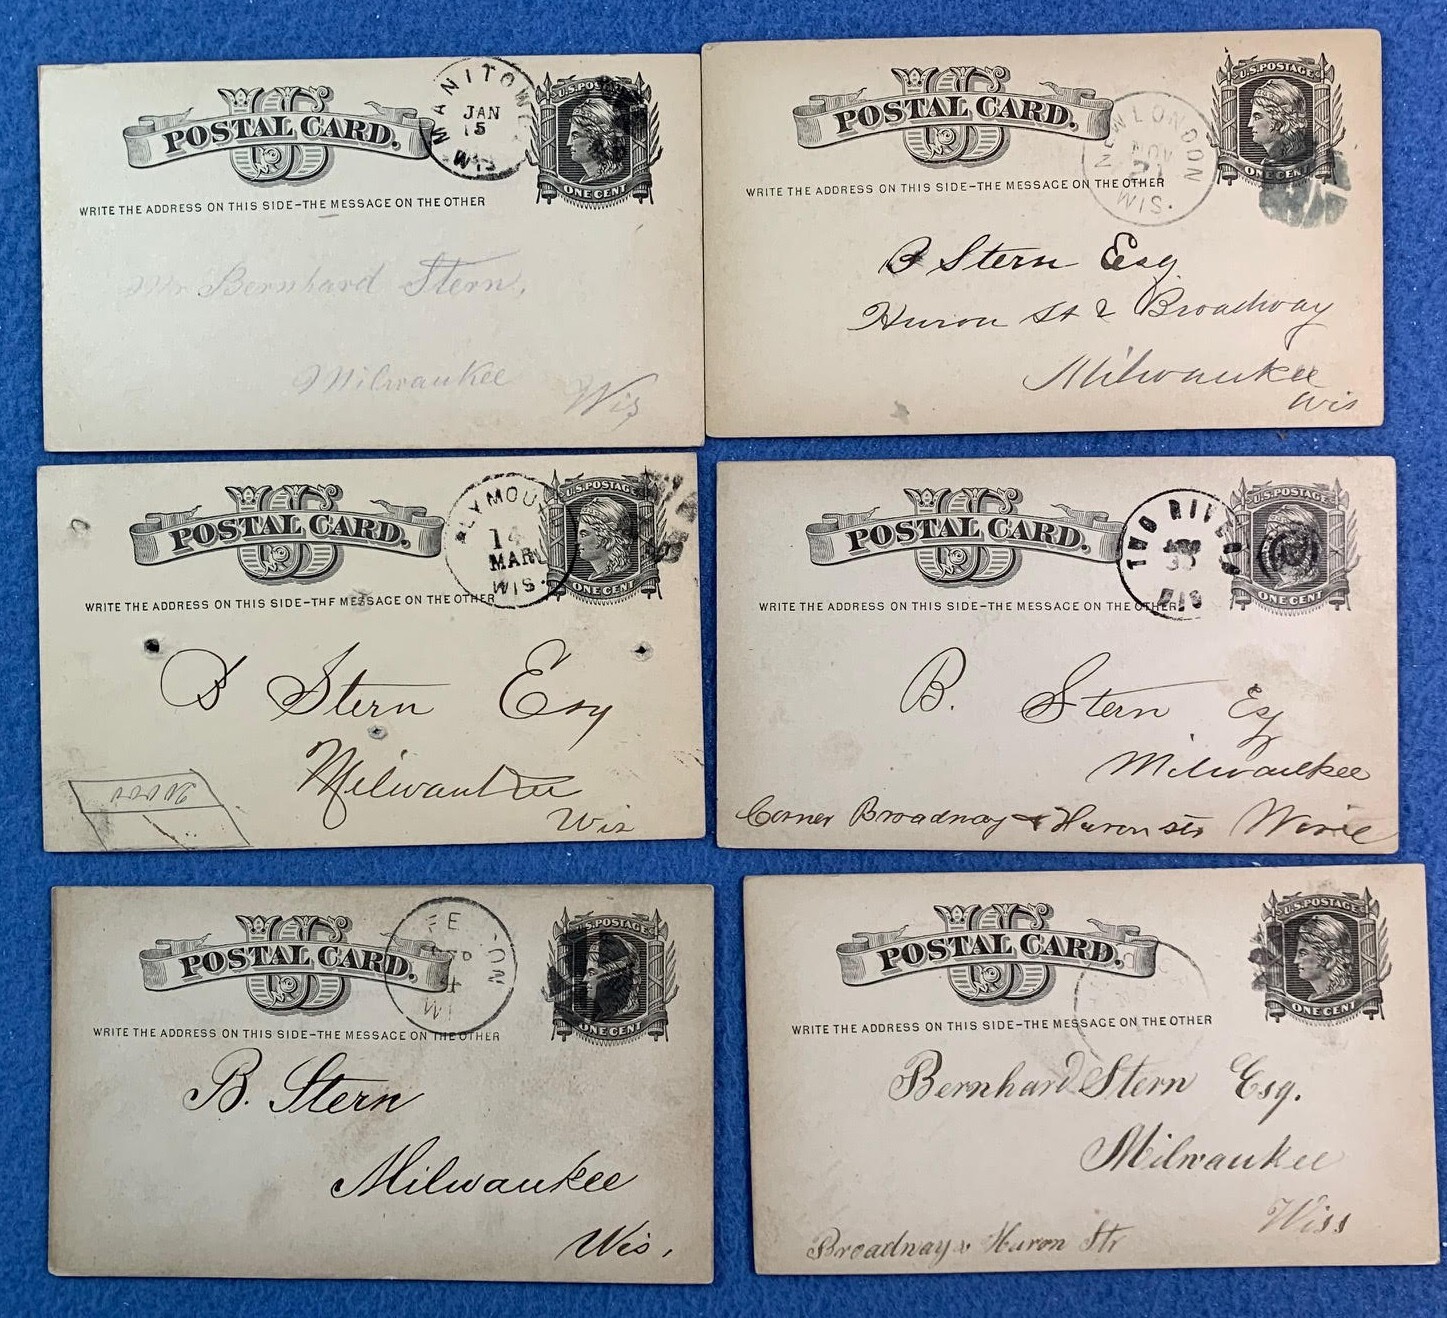 US
POSTAL CARD.
MANITOWOC
JAN
15
WIS
U.S. POSTAGE
ONE CENT
WRITE THE ADDRESS ON THIS SIDE-THE MESSAGE ON THE OTHER
Mr Bernhard Stern,
Milwaukee
Wis
US
POSTAL CARD.
NEW LONDON
NOV
21
WIS.
U.S. POSTAGE
ONE CENT
WRITE THE ADDRESS ON THIS SIDE-THE MESSAGE ON THE OTHER
B Stern Esq
Huron St & Broadway
Milwaukee
Wis
US
POSTAL CARD.
PLYMOU
14
MAR
WIS.
U.S. POSTAGE
ONE CENT
WRITE THE ADDRESS ON THIS SIDE-THE MESSAGE ON THE OTHER
B Stern Esq
Milwaukee
Wis
US
POSTAL CARD.
TWO RIVE
30
WIS
U.S. POSTAGE
ONE CENT
WRITE THE ADDRESS ON THIS SIDE-THE MESSAGE ON THE OTHER
B. Stern Esq
Milwaukee
Corner Broadway & Huron sts
US
POSTAL CARD.
U.S. POSTAGE
ONE CENT
WRITE THE ADDRESS ON THIS SIDE-THE MESSAGE ON THE OTHER
B. Stern
Milwaukee
Wis.
US
POSTAL CARD.
U.S. POSTAGE
ONE CENT
WRITE THE ADDRESS ON THIS SIDE-THE MESSAGE ON THE OTHER
Bernhard Stern Esq.
Milwaukee
Wiss
Broadway & Huron Str